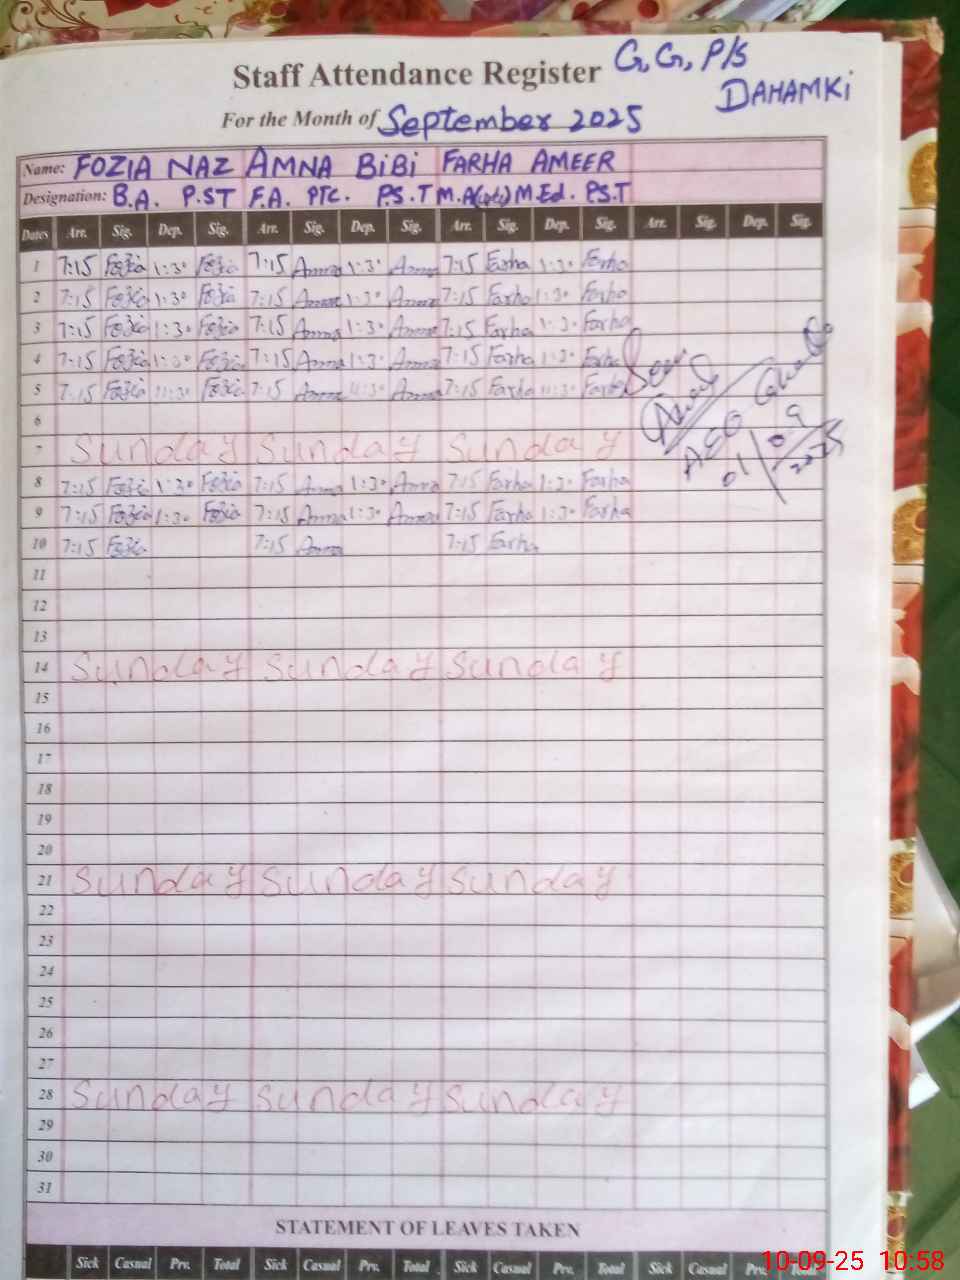 Staff Attendance Register G.G.P/S
DAHAMKi
For the Month of September 2025
Name: FOZIA NAZ AMNA BiBi FARHA AMEER
Designation: B.A. P.ST F.A. PTC. P.S.T M.A M.Ed. P.S.T
Dates Arr. Sig. Dep. Sig. Arr. Sig. Dep. Sig. Arr. Sig. Dep. Sig. Arr. Sig. Dep. Sig.
1 7:15 Fozia 1:30 Fozia 7:15 Amna 1:30 Amna 7:15 Farha 1:30 Farha
2 7:15 Fozia 1:30 Fozia 7:15 Amna 1:30 Amna 7:15 Farha 1:30 Farha
3 7:15 Fozia 1:30 Fozia 7:15 Amna 1:30 Amna 7:15 Farha 1:30 Farha
4 7:15 Fozia 1:30 Fozia 7:15 Amna 1:30 Amna 7:15 Farha 1:30 Farha Seen
5 7:15 Fozia 11:30 Fozia 7:15 Amna 11:30 Amna 7:15 Farha 11:30 Farha
AEO
01/09
2025
6
7 Sunday Sunday Sunday
8 7:15 Fozia 1:30 Fozia 7:15 Amna 1:30 Amna 7:15 Farha 1:30 Farha
9 7:15 Fozia 1:30 Fozia 7:15 Amna 1:30 Amna 7:15 Farha 1:30 Farha
10 7:15 Fozia 7:15 Amna 7:15 Farha
11
12
13
14 Sunday Sunday Sunday
15
16
17
18
19
20
21 Sunday Sunday Sunday
22
23
24
25
26
27
28 Sunday Sunday Sunday
29
30
31
STATEMENT OF LEAVES TAKEN
Sick Casual Prv. Total Sick Casual Prv. Total Sick Casual Prv. Total Sick Casual Prv. Total
10-09-25 10:58